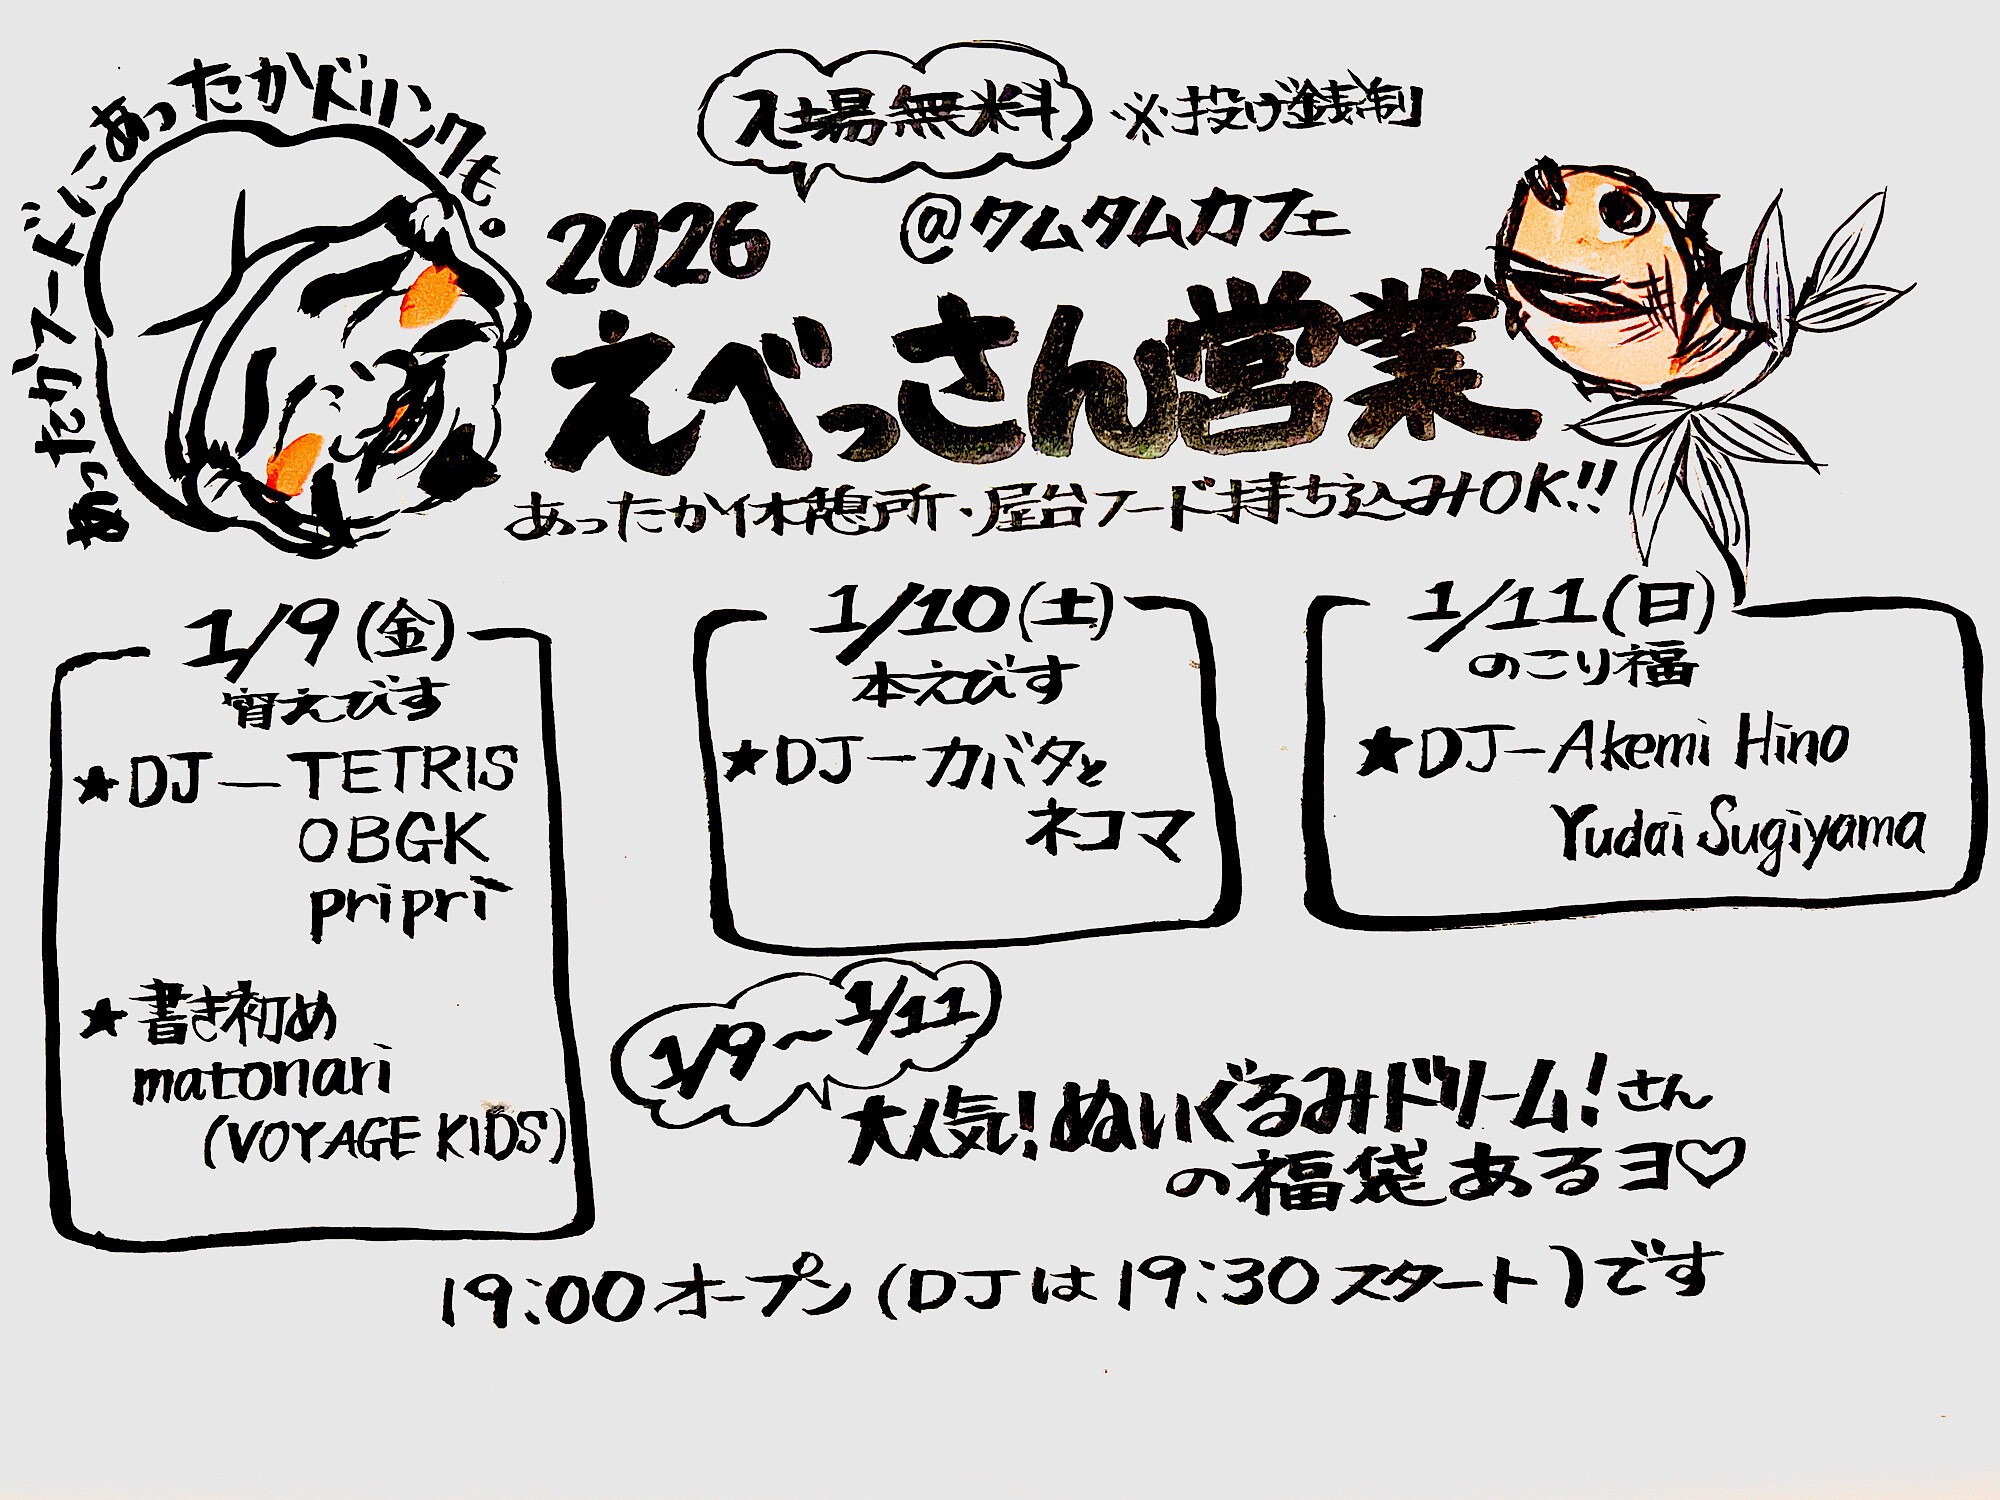 あったかフードにあったかドリンクも。
入場無料
※投げ銭制
2026
@タムタムカフェ
えべっさん営業
あったか休憩所・屋台フード持ち込みOK!!
1/9(金)
宵えびす
★DJ―TETRIS
OBGK
pripri
★書き初め
matonari
(VOYAGE KIDS)
1/10(土)
本えびす
★DJ―カバタと
ネコマ
1/11(日)
のこり福
★DJ―Akemi Hino
Yudai Sugiyama
1/9〜1/11
大人気!ぬいぐるみドリーム!さん
の福袋あるヨ♡
19:00オープン(DJは19:30スタート)です